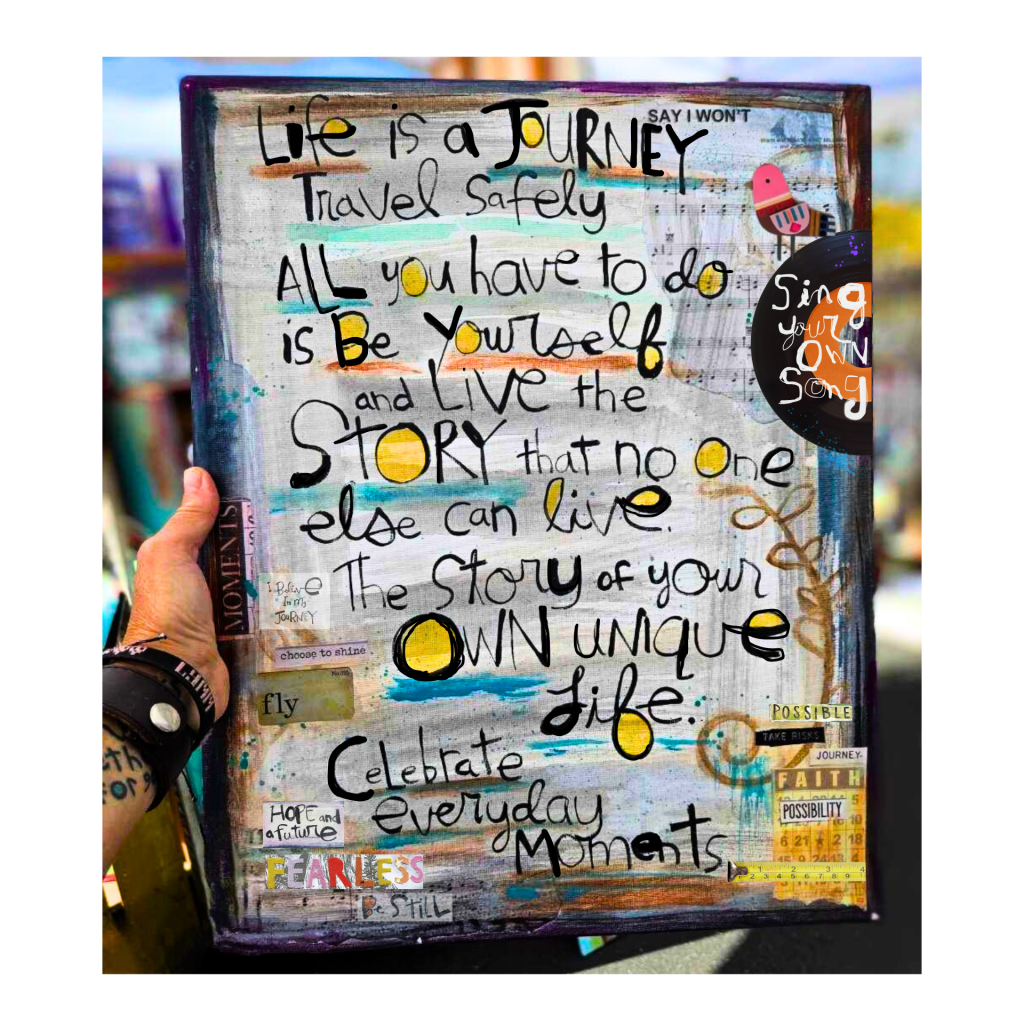 Life is a JOURNEY
Travel Safely
ALL you have to do
is Be Yourself
and LIVE the
STORY that no One
else can live.
The Story of your
OWN unique
Life.
Celebrate
everyday
Moments
SAY I WON'T
Sing
your
OWN
Song
MOMENTS
I Believe
in my
JOURNEY
choose to shine
fly
HOPE and
a future
FEARLESS
Be STILL
POSSIBLE
TAKE RISKS
JOURNEY
FAITH
POSSIBILITY